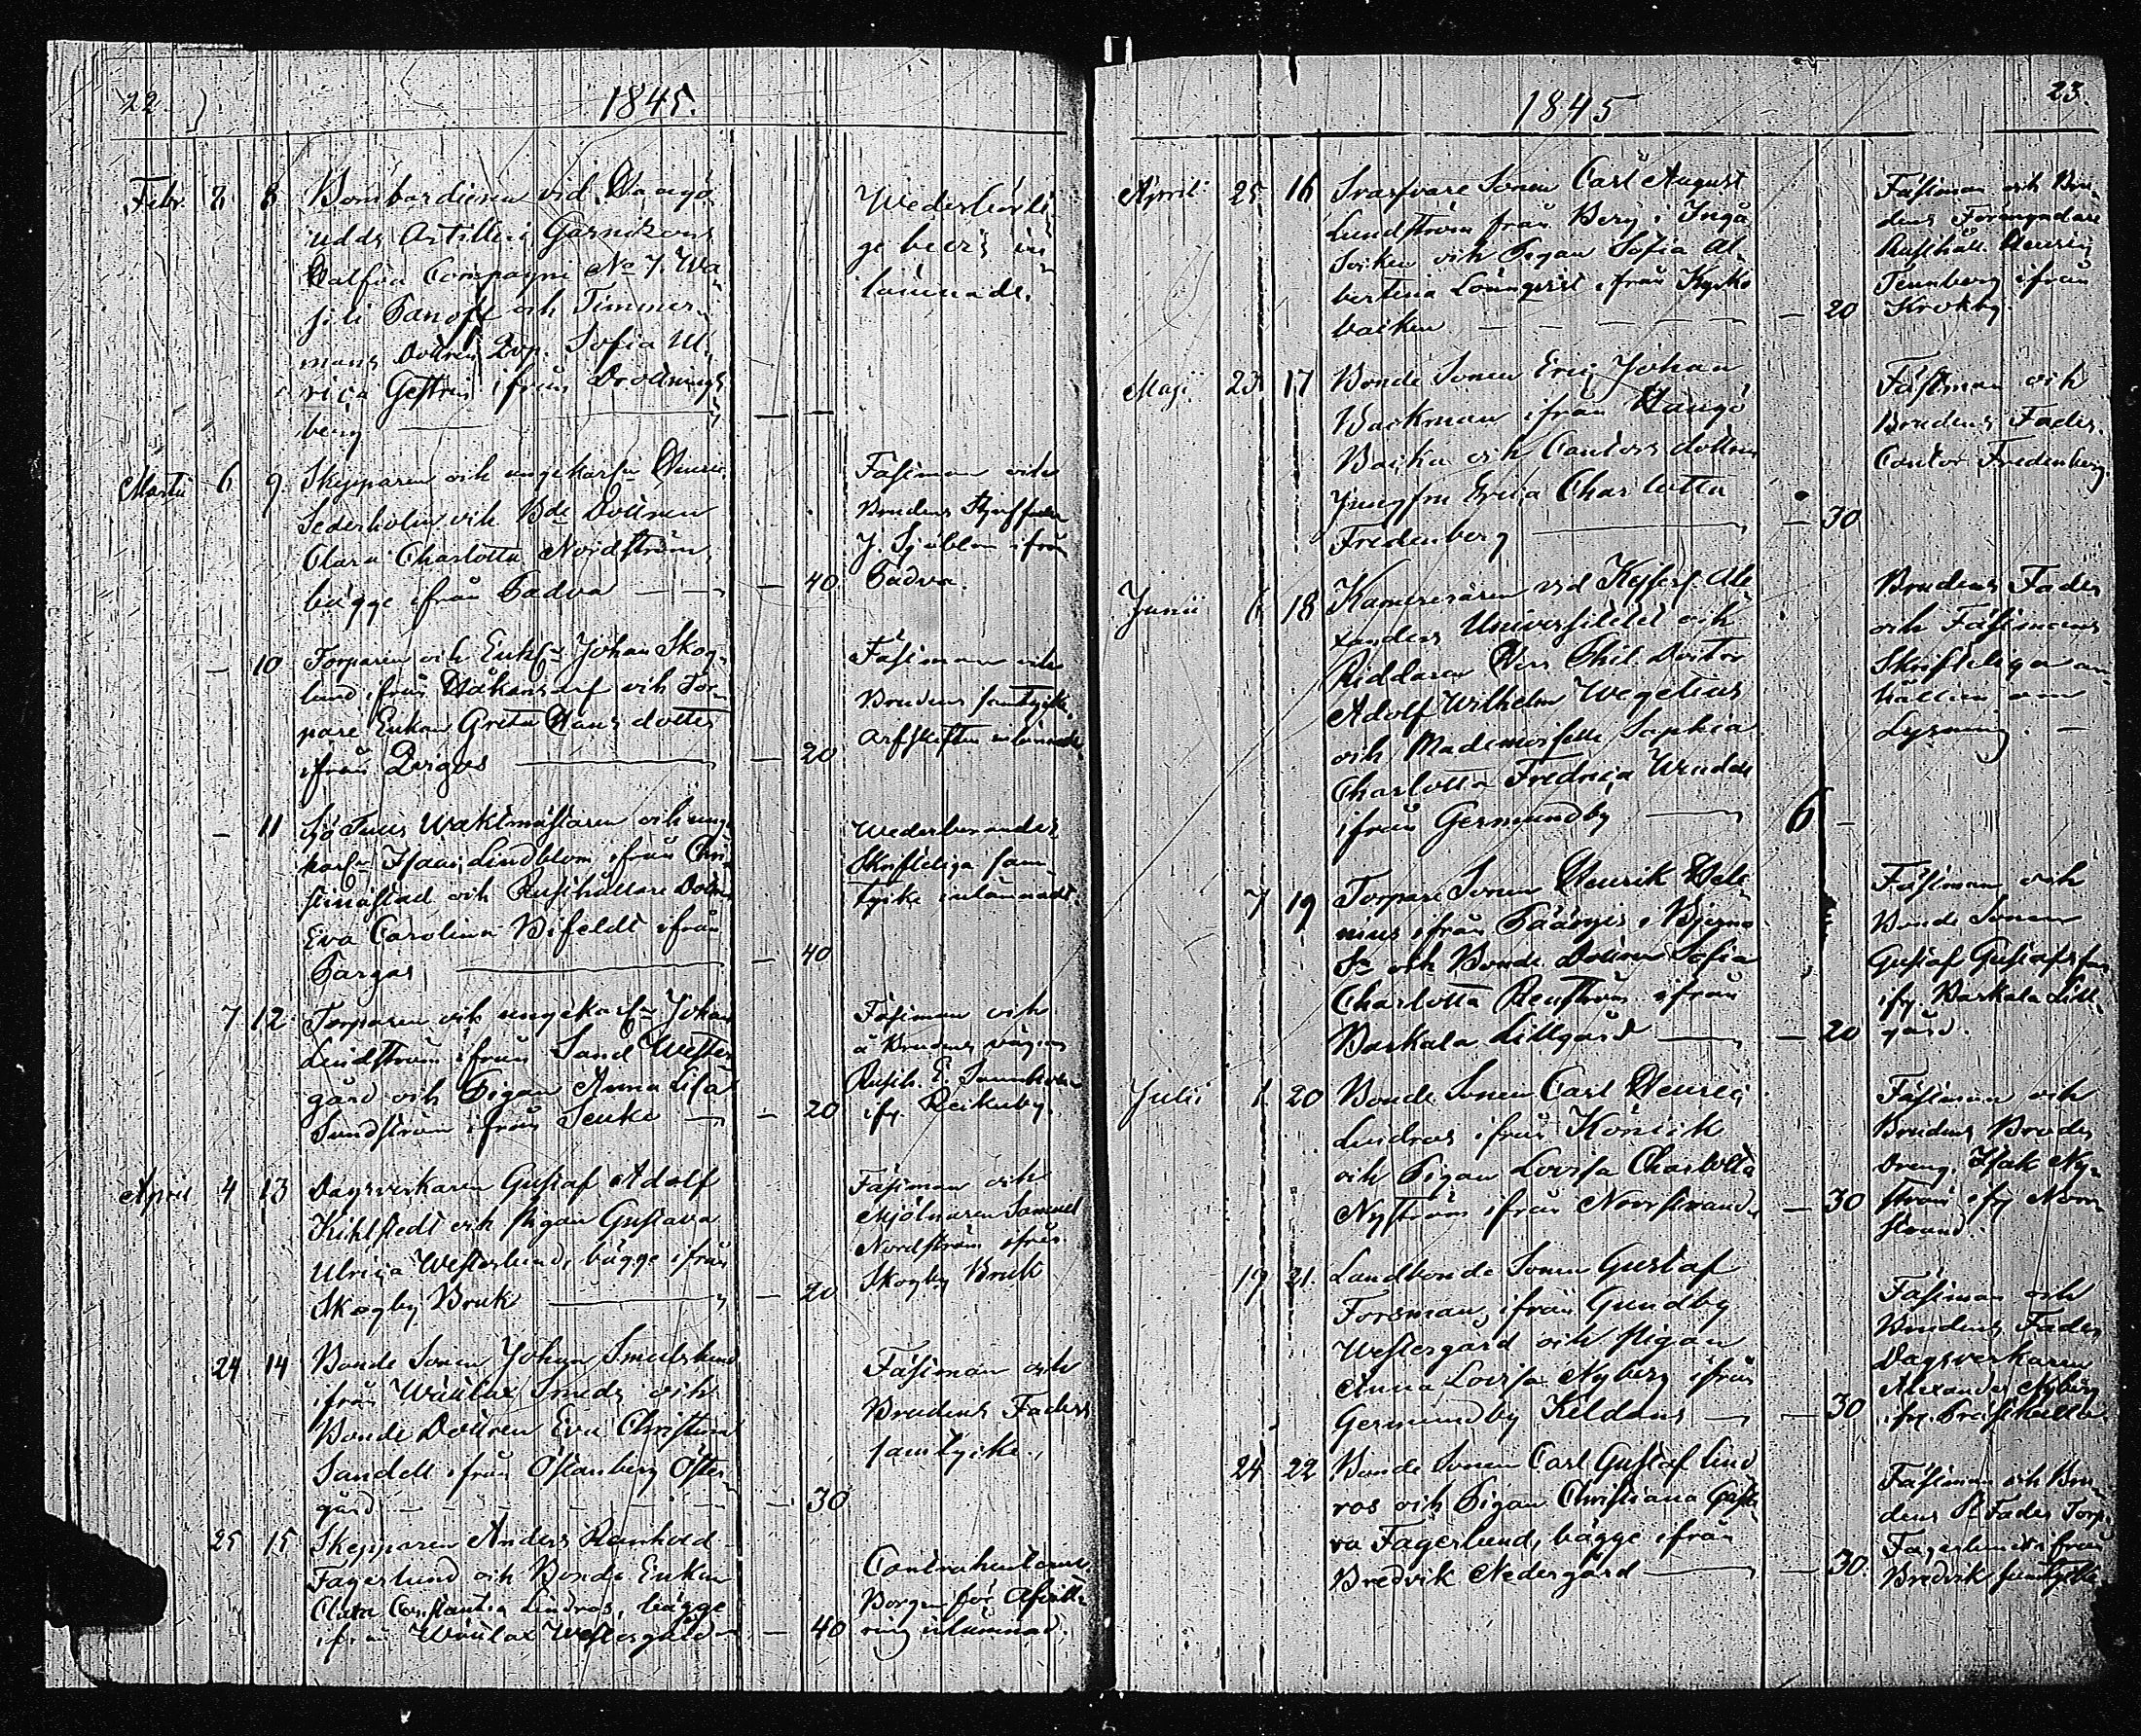 22
1845.
Febr. 8 8 Bombardieren vid Hangö
udds Artilleri Garnizons
Halfva Compagni No 7. Wa
sili Panoff och Timmer
mans Dottren Sofia Ul
rica ifrån Drottnings
berg
Wederbörli
ge bevis in
lämnade.
Martii 6 9. Skepparen och ungekarln Henric
Sederholm och Bde Dottren
Clara Charlotta Nordström,
bägge ifrån Padva — 40
Fästman och
Brudens Styffader
J. Sjöblom ifrån
Padva.
— 10 Torparen och Enkl. Johan Skog
lund ifrån Håkansarf och Tor
pare Enkan Greta Hans dotter
ifrån — 20
Fästman och
Brudens samtycke.
Arfskiften inlämnade
— 11 Sjö Tulls Waktmästaren och ung
karln Isaac Lindblom ifrån Chri
stinæstad och Rusthållare Dottren
Eva Carolina Bifeldt ifrån
Pargas — 40
Wederbörandes
Skrifteliga sam
tycke inlämnadt.
7 12 Torparen och ungekarln Johan
Lindström ifrån Sand Wester
gård och Pigan Anna Lisa
Sundström ifrån — 20
Fästman och
å Brudens vägnar
Rusth. E.
ifr.
April 4 13 Dagsverkaren Gustaf Adolf
Kihlstedt och Pigan Gustava
Ulrica Westerlund, bägge ifrån
Skogby Bruk — 20
Fästman och
Mjölnaren Samuel
Nordström ifrån
Skogby Bruk
24 14 Bonde Sonen Johan Smedslund
ifrån Wäulax Smeds och
Bonde Dottren Eva Christina
Sandell ifrån Östanberg Öster
gård — 30
Fästman och
Brudens Faders
samtycke.
25 15 Skepparen Anders Reinhold
Fagerlund och Bonde Enkan
Clara Constantia Lindros, bägge
ifrån Wäulax Westergård — 40
Contrahenterne
Borgen för Afvitt
ring inlämnad.
23.
1845
April 25 16 Svarfvare Sonen Carl August
Lundström från Berg i Ingå
Socken och Pigan Sofia Al
bertina Lönnqvist ifrån Kyrko
backen — 20
Fästman och Bru
dens Förmyndare
Rusthåll. Henric
Tennberg ifrån
Krokby.
Maji 23 17 Bonde Sonen Eric Johan
Backman ifrån Hangö
Backa och Cantors dottren
Jungfru Erica Charlotta
Fredenberg — 30
Fästman och
Brudens Fader.
Cantor Fredenberg.
Junii 6 18 Kamereraren vid Kejserl. Ale
xanders Universitetet och
Riddaren Herr Phil. Doctor
Adolf Wilhelm Wegelius
och Mademoiselle Sophia
Charlotta Fredrica
ifrån Germundby — 6 —
Brudens Fader
och Fästmans
Skrifteliga an
hållan om
Lysning. —
7 19 Torpare Sonen Henrik Heli
nius ifrån i Bjerno
Sn och Bonde Dottren Sofia
Charlotta Renström ifrån
Baskala Lillgård — 20
Fästman och
Bonde Sonen
Gustaf Gustafsson
ifr. Baskala Lill
gård.
Julii 1 20 Bonde Sonen Carl Henric
Lindros ifrån
och Pigan Lovisa Charlotta
Nyström ifrån Norrstrand — 30
Fästman och
Brudens Broder
Dreng. Isak Ny
ström ifr. Norr
strand.
19 21. Landbonde Sonen Gustaf
Forsman, ifrån Gundby
Westergård och Pigan
Anna Lovisa Nyberg ifrån
Germundby Keldans — 30
Fästman och
Brudens Fader
Dagsverkaren
Alexander Nyberg
ifr. Prästkulla.
24 22 Bonde Sonen Carl Gustaf Lind
ros och Pigan Christiana Gusta
va Fagerlund, bägge ifrån
Bredvik Nedergård — 30.
Fästman och Bru
dens Fader Torp.
Fagerlund ifrån
Bredvik samtycke